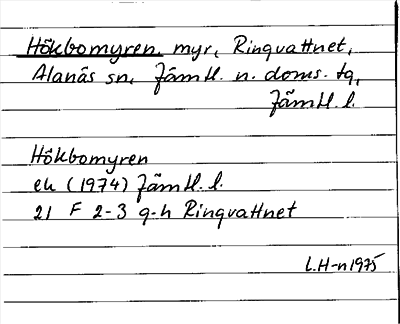 Hökbomyren, myr, Ringvattnet,
Alanäs sn, Jämtl. n. doms. tg,
Jämtl. l.
Hökbomyren
ek (1974) Jämtl. l.
21 F 2-3 g-h Ringvattnet
L.H-n 1975